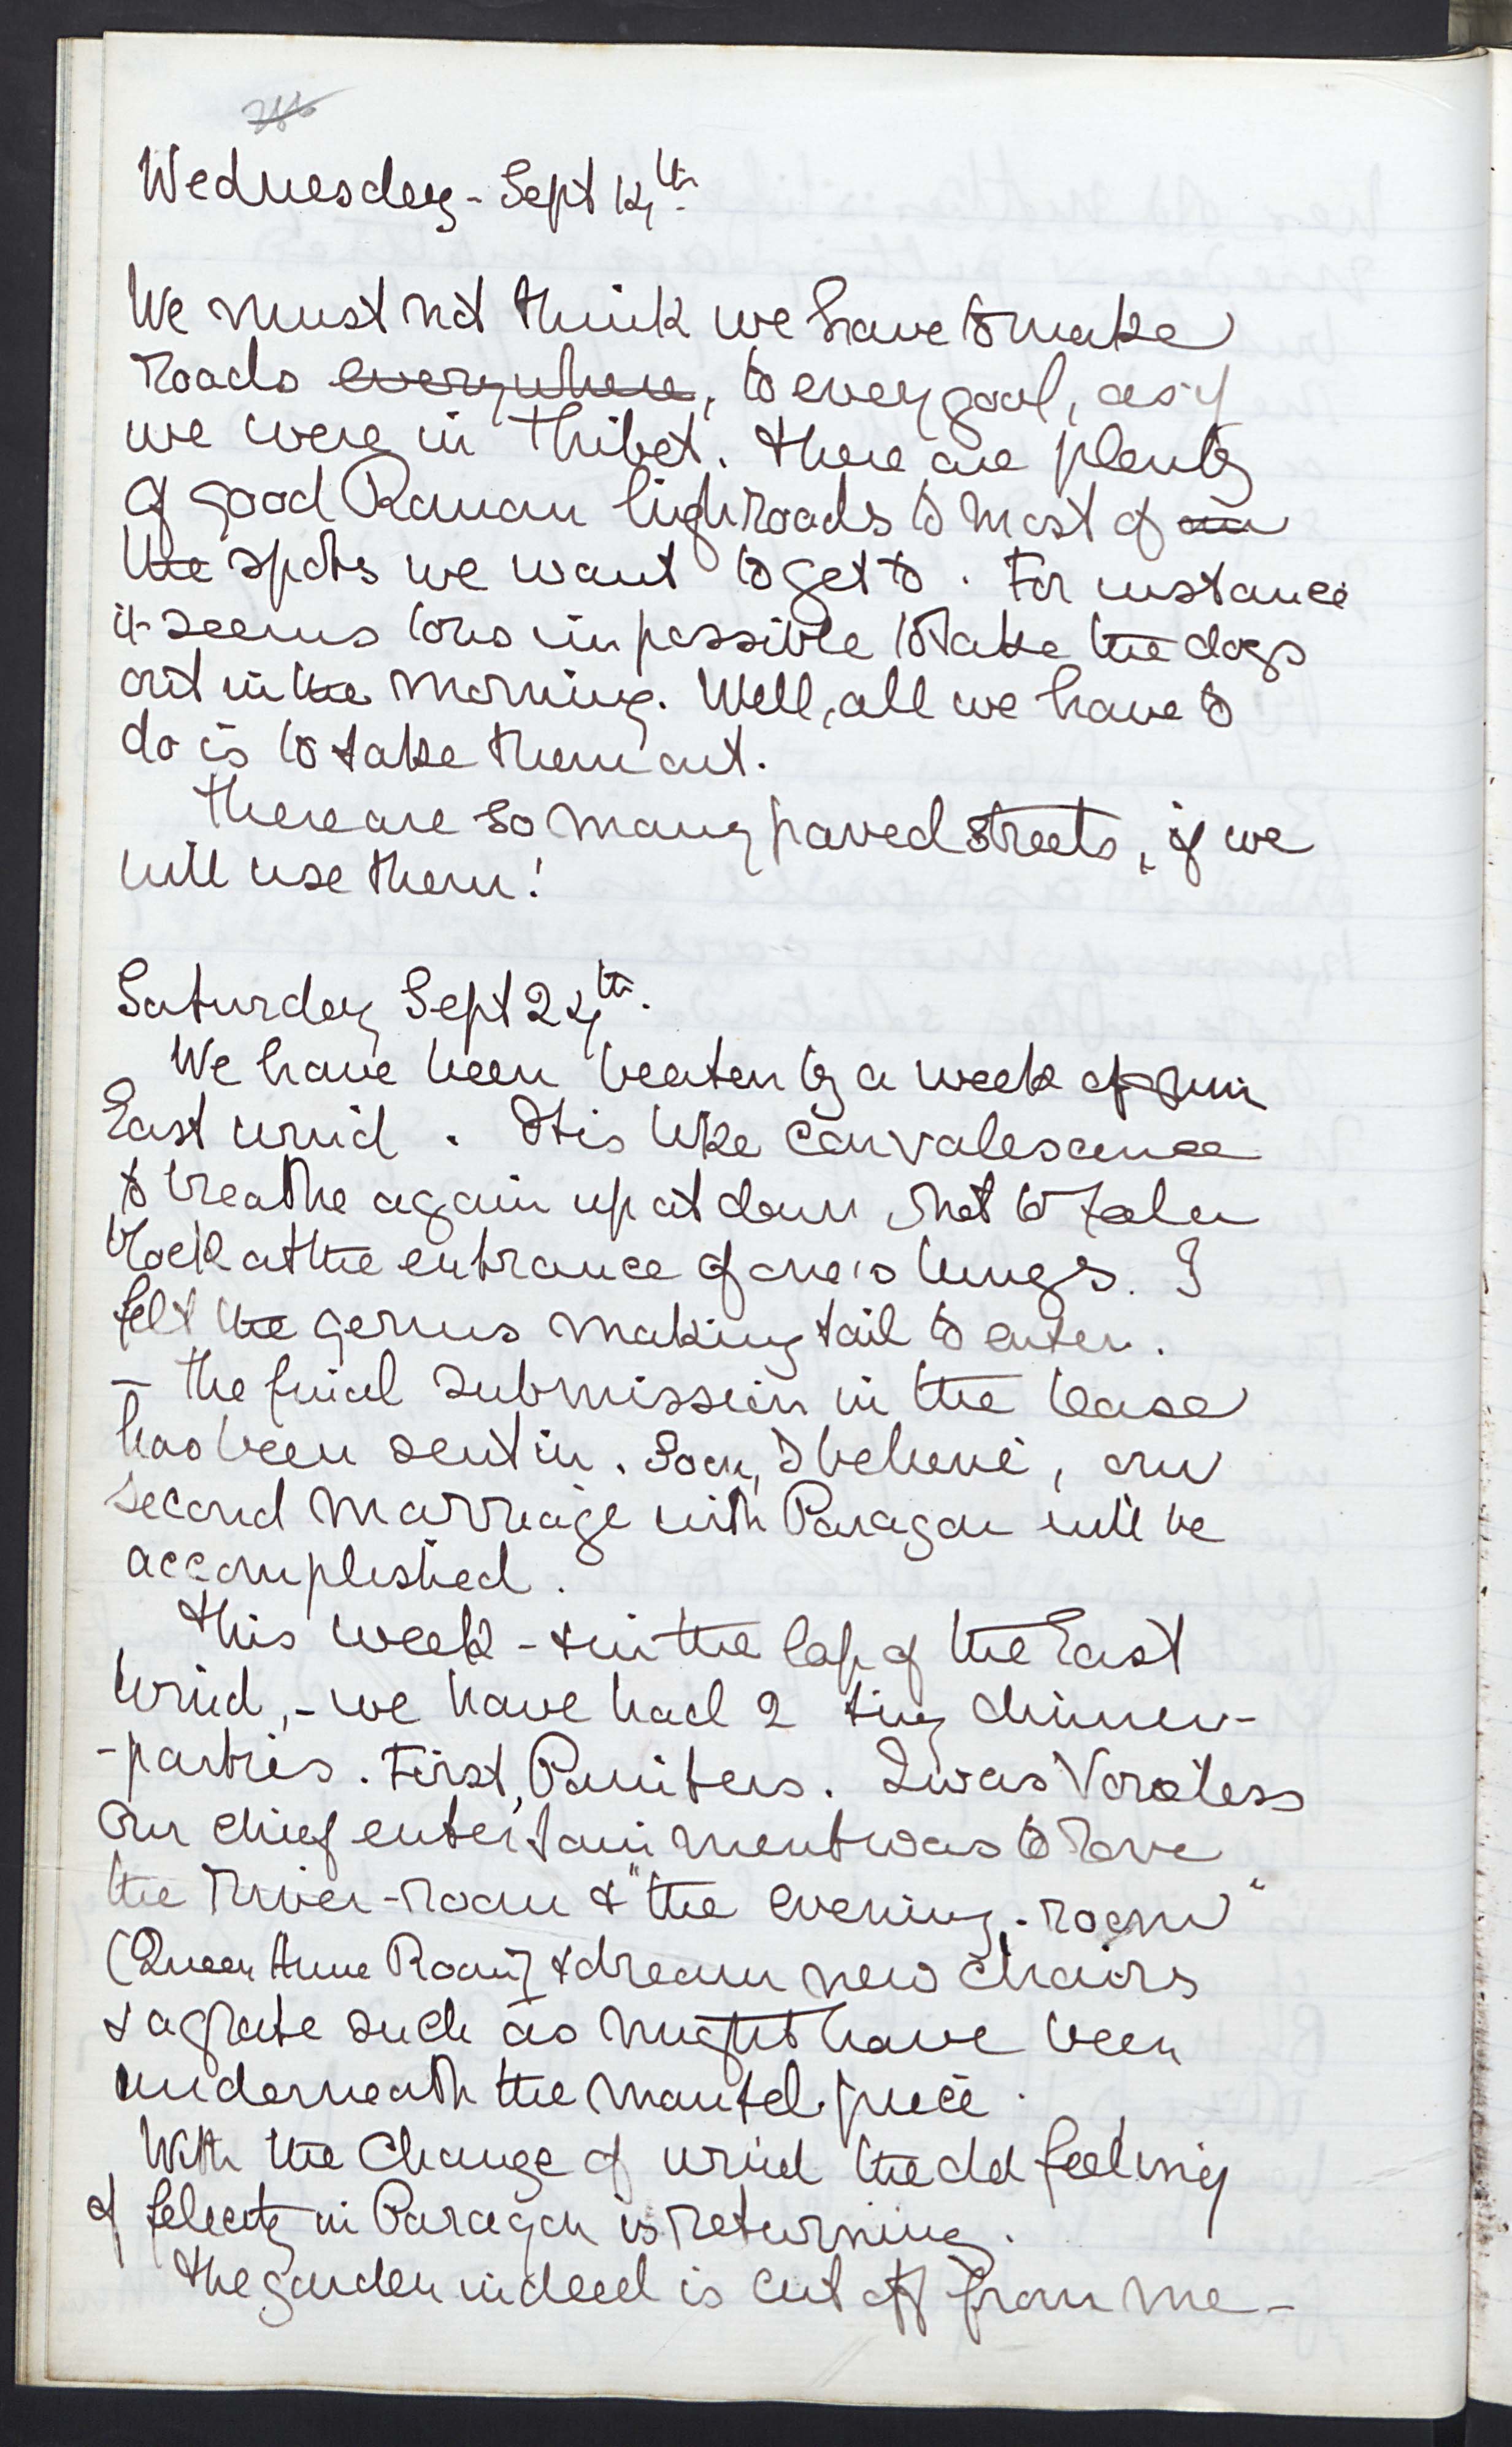 Wednesday - Sept 14th.
We must not think we have to make
roads everywhere, to every goal, as if
we were in Thibet. There are plenty
of good Roman highroads to most of our
the spots we want to get to. For instance
it seems to us impossible to take the dogs
out in the morning. Well, all we have to
do is to take them out.
There are so many paved streets, if we
will use them!
Saturday Sept 24th.
We have been beaten by a week of
East wind. It is like convalescence
to breathe again up at dawn, not to
block at the entrance of one's lungs. I
felt the germs making tail to enter.
- The final submission in the lease
has been sent in. Soon, I believe, our
second marriage with Paragon will be
accomplished.
This week - & in the lap of the East
Wind, - we have had 2 tiny dinner-
-parties. First, Painters. I was Voiceless
Our chief entertainment was to rove
the River-room & "the evening-room"
(Queen Anne Room) & dream new chairs
& a grate such as might have been
underneath the mantel-piece.
With the change of wind the old feeling
of felicity in Paragon is returning.
The garden indeed is cut off from me -